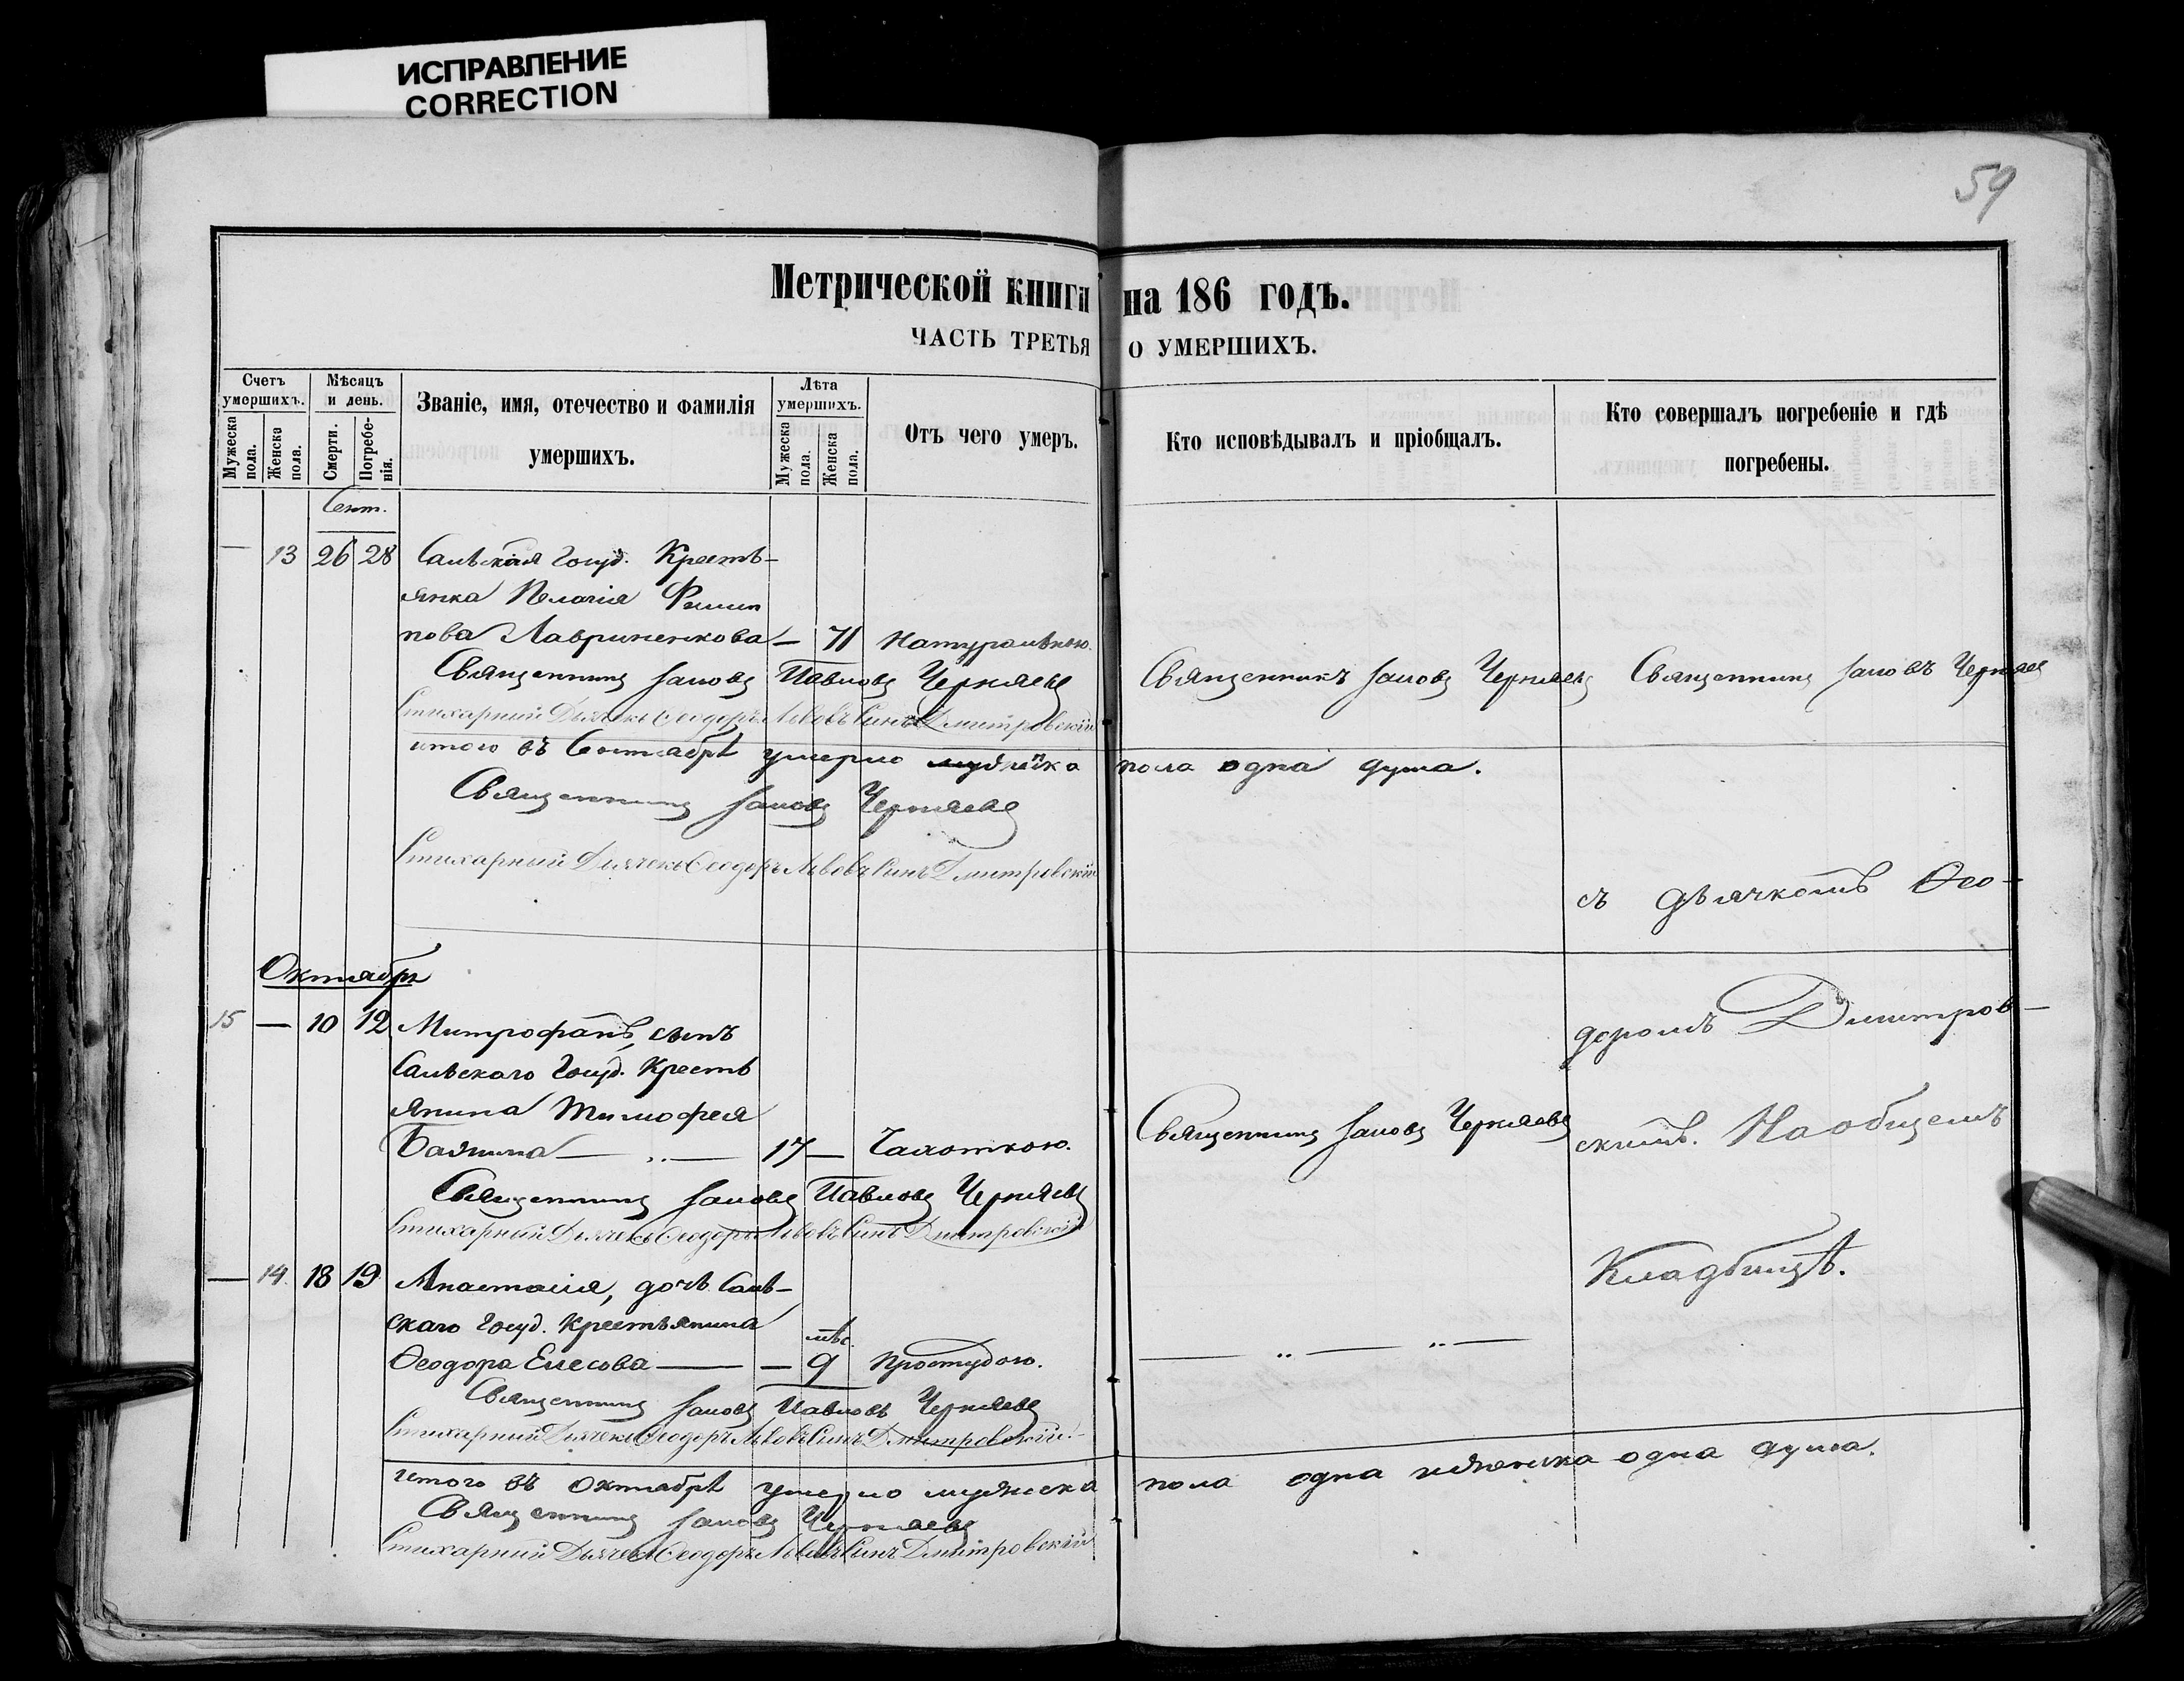 ИСПРАВЛЕНИЕ
CORRECTION
59
Метрической книги на 186 годъ.
ЧАСТЬ ТРЕТЬЯ О УМЕРШИХЪ.
Счетъ умершихъ.
Мужеска пола.
Женска пола.
Мѣсяцъ и день.
Смерти.
Погребе-
нія.
Званіе, имя, отечество и фамилія
умершихъ.
Лѣта умершихъ.
Мужеска пола.
Женска пола.
Отъ чего умеръ.
Кто исповѣдывалъ и пріобщалъ.
Кто совершалъ погребеніе и гдѣ
погребены.
Сент.
— 13 26 28 Сальская Госуд. Кресть-
янка Пелагія Филип
пова Лавриненкова — 71 Натуральною.
Священникъ Іаковъ Павловъ Черняевъ
Священникъ Іаковъ Черняевъ
Священникъ Іаковъ Черняев
Стихарный Дьячекъ Ѳеодоръ Львовъ Синъ Дмитровскій
итого въ Сентябрѣ умерло пола одна душа.
Священникъ Іаковъ Черняевъ
Стихарный Дьячекъ Ѳеодоръ Львовъ Синъ Дмитровскій
съ дьячкомъ Ѳео-
Октябрь
доромъ Дмитров-
15 — 10 12 Митрофанъ, сынъ
Сальскаго Госуд. Кресть
янина Тимофея
Баянина — „ — 17 — Чахоткою.
Священникъ Іаковъ Черняевъ
скимъ. На общемъ
Священникъ Іаковъ Павловъ Черняевъ
Стихарный Дьячекъ Ѳеодоръ Львовъ Синъ Дмитровскій
Кладбищѣ.
— 14. 18 19 Анастасія, дочь Саль-
скаго Госуд. Крестьянина
мѣс.
Ѳеодора Елесова — — 9 простудою.
— „ — „ —
Священникъ Іаковъ Павловъ Черняевъ
Стихарный Дьячекъ Ѳеодоръ Львовъ Синъ Дмитровскій
итого въ Октябрѣ умерло мужеска пола одна женска одна душа.
Священникъ Іаковъ Черняевъ
Стихарный Дьячекъ Ѳеодоръ Львовъ Синъ Дмитровскій